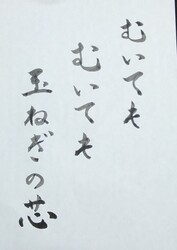 むいても
むいても
玉ねぎの芯